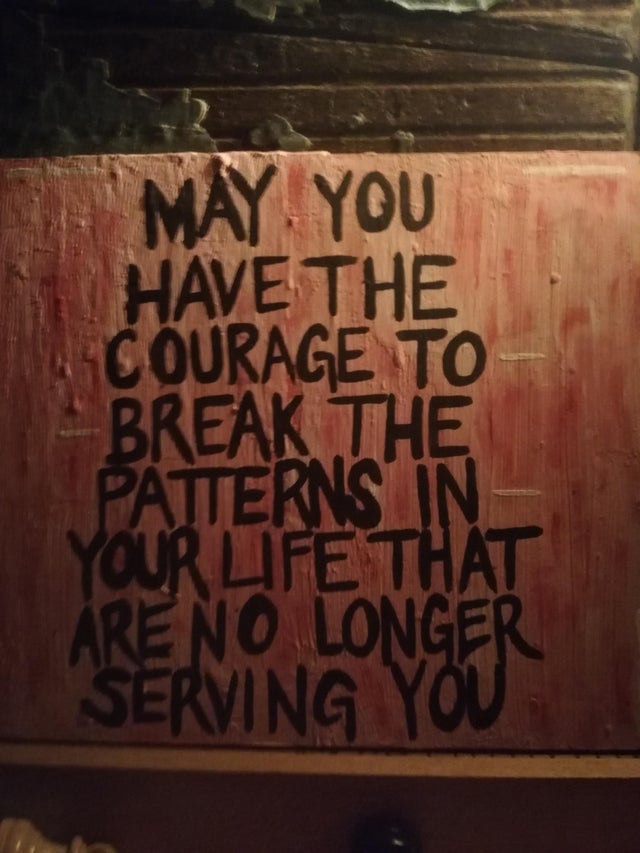 MAY YOU
HAVE THE
COURAGE TO
BREAK THE
PATTERNS IN
YOUR LIFE THAT
ARE NO LONGER
SERVING YOU